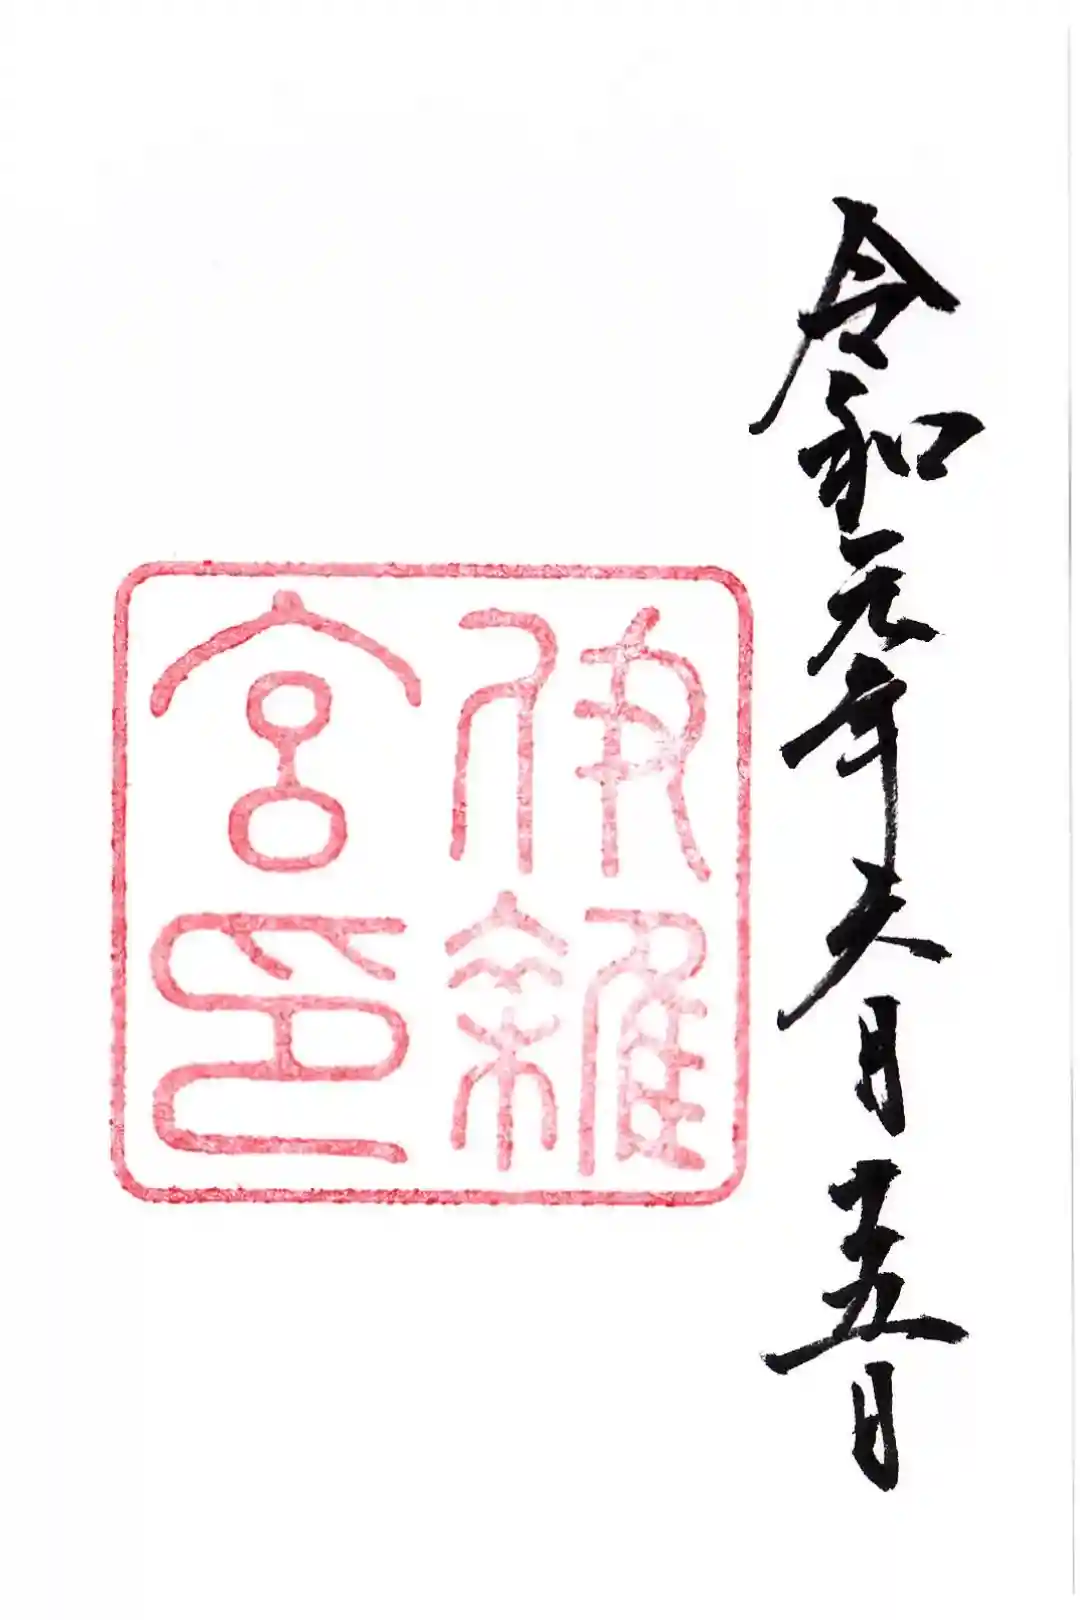 令和元年六月十五日
伊雜
宮印